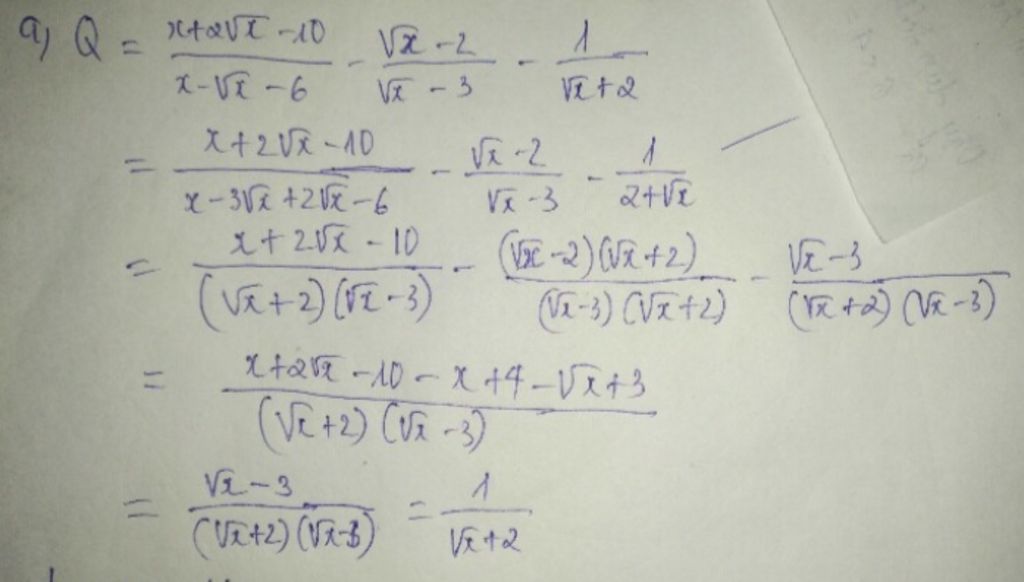 a) Q = (x+2√x -10)/(x-√x -6) - (√x -2)/(√x -3) - 1/(√x+2)
= (x+2√x -10)/(x-3√x +2√x -6) - (√x -2)/(√x -3) - 1/(2+√x)
= (x+2√x -10)/((√x+2)(√x-3)) - ((√x-2)(√x+2))/((√x-3)(√x+2)) - (√x-3)/((√x+2)(√x-3))
= (x+2√x -10 - x +4 -√x+3)/((√x+2)(√x-3))
= (√x-3)/((√x+2)(√x-3)) = 1/(√x+2)